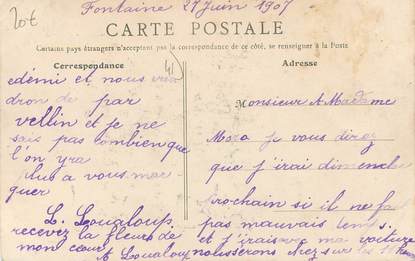 20€
Fontaine 27 Juin 1907
CARTE POSTALE
Certains pays étrangers n'acceptent pas la correspondance de ce côté, se renseigner à la Poste
Correspondance
41
Adresse
edémi et nous
dron de par
vellin et je ne
sais pas combien que
l'on yra
a vous mar
quer
L. Loualoup
recevez la fleur de
mon cœur
Loualoup
Monsieur et Madame
je vous direz
que j'irai dimenche
prochain si il ne fa
pas mauvais temps.
et j'irais ma voiture
chez sur les